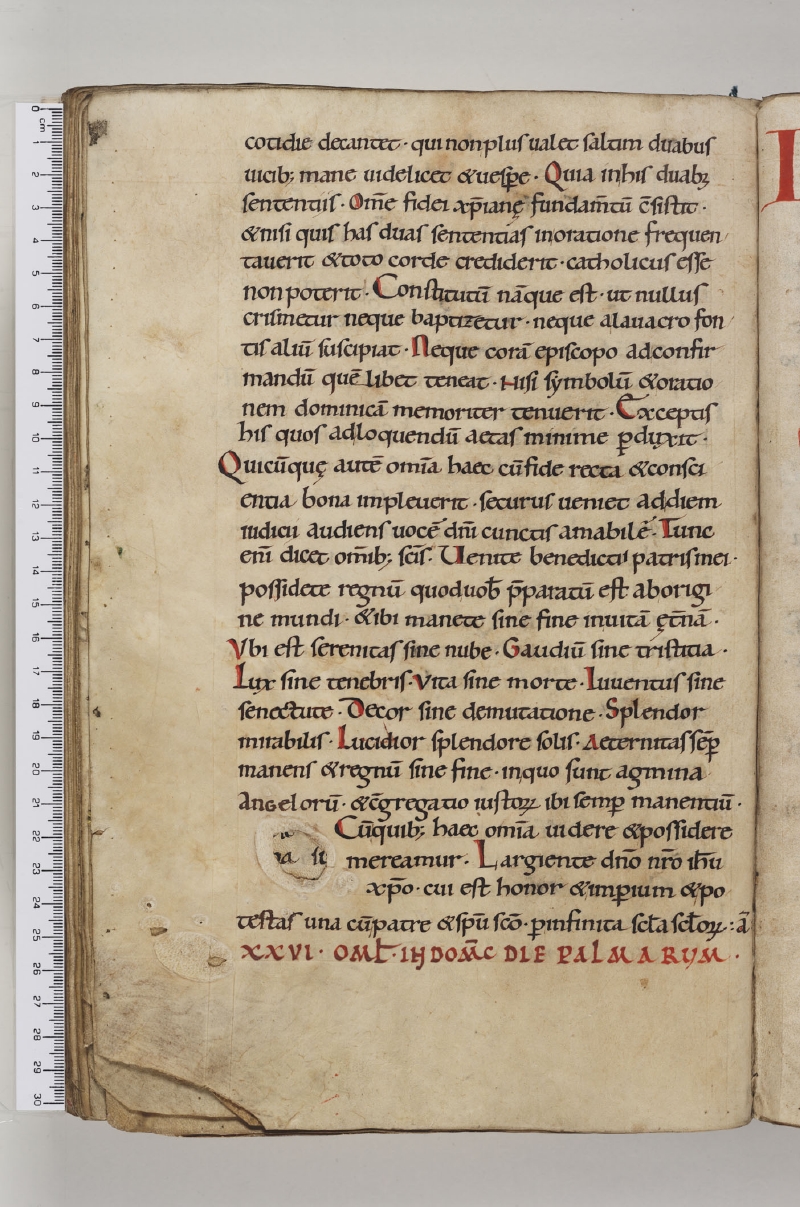 cotidie decantet · qui non plus ualet saltim duabus
uicib; mane uidelicet & uesp̄e · Quia in his duab;
sententiis · Om̄e fidei xp̄ianę fundam̄tū c̄sistit ·
& nisi quis has duas sententias in oratione frequen
tauerit & toto corde crediderit · catholicus esse
non poterit · Constitutū nāque est · ut nullus
crismetur neque baptizetur · neque a lauacro fon
tis aliū suscipiat · Neque corā episcopo ad confir
mandū quē libet teneat · Nisi symbolū & oratio
nem dominicā memoriter tenuerit · Exceptis
his quos ad loquendū aetas minime ꝑduxit ·
Quicūquę autē om̄ia haec cū fide recta & consci
entia bona impleuerit · securus ueniet ad diem
iudicii audiens uocē dn̄i cunctis amabilē · Tunc
eni̅ dicet om̄ib; sc̄is · Uenite benedicti patris mei ·
possidete regnū quod uob̄ p̄paratū est ab origi
ne mundi · & ibi manete sine fine in uitā ęt̄nā ·
Vbi est serenitas sine nube · Gaudiū sine tristitia ·
Lux sine tenebris · Vita sine morte · Iuuentus sine
senectute · Decor sine demutatione · Splendor
mirabilis · Lucidior splendore solis · Aeternitas sēꝑ
manens & regnū sine fine · in quo sunt agmina
Angelorū · & c̄gregatio iustoꝝ ibi semꝑ manentiū ·
Cū quib; haec om̄ia uidere & possidere
mereamur · Largiente dn̄o nr̄o ih̄u
xp̄o · cui est honor & imꝑium & po
testas una cū patre & sp̄u sc̄o · ꝑ infinita sc̄la sc̄loꝝ : ā
XXVI · OML̄ · IN DOM̄C DIE PALMARUM ·
0 cm 1 2 3 4 5 6 7 8 9 10 11 12 13 14 15 16 17 18 19 20 21 22 23 24 25 26 27 28 29 30